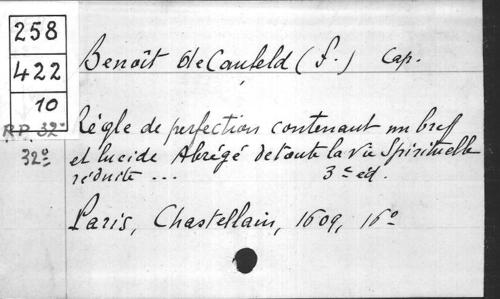 258
422
10
RP. 32º
32º
Benoît de Canfeld (P.) Cap.
Règle de perfection contenant un bref
et lucide Abrégé de toute la vie Spirituelle
réduite ... 3e éd.
Paris, Chastellain, 1609, 16º